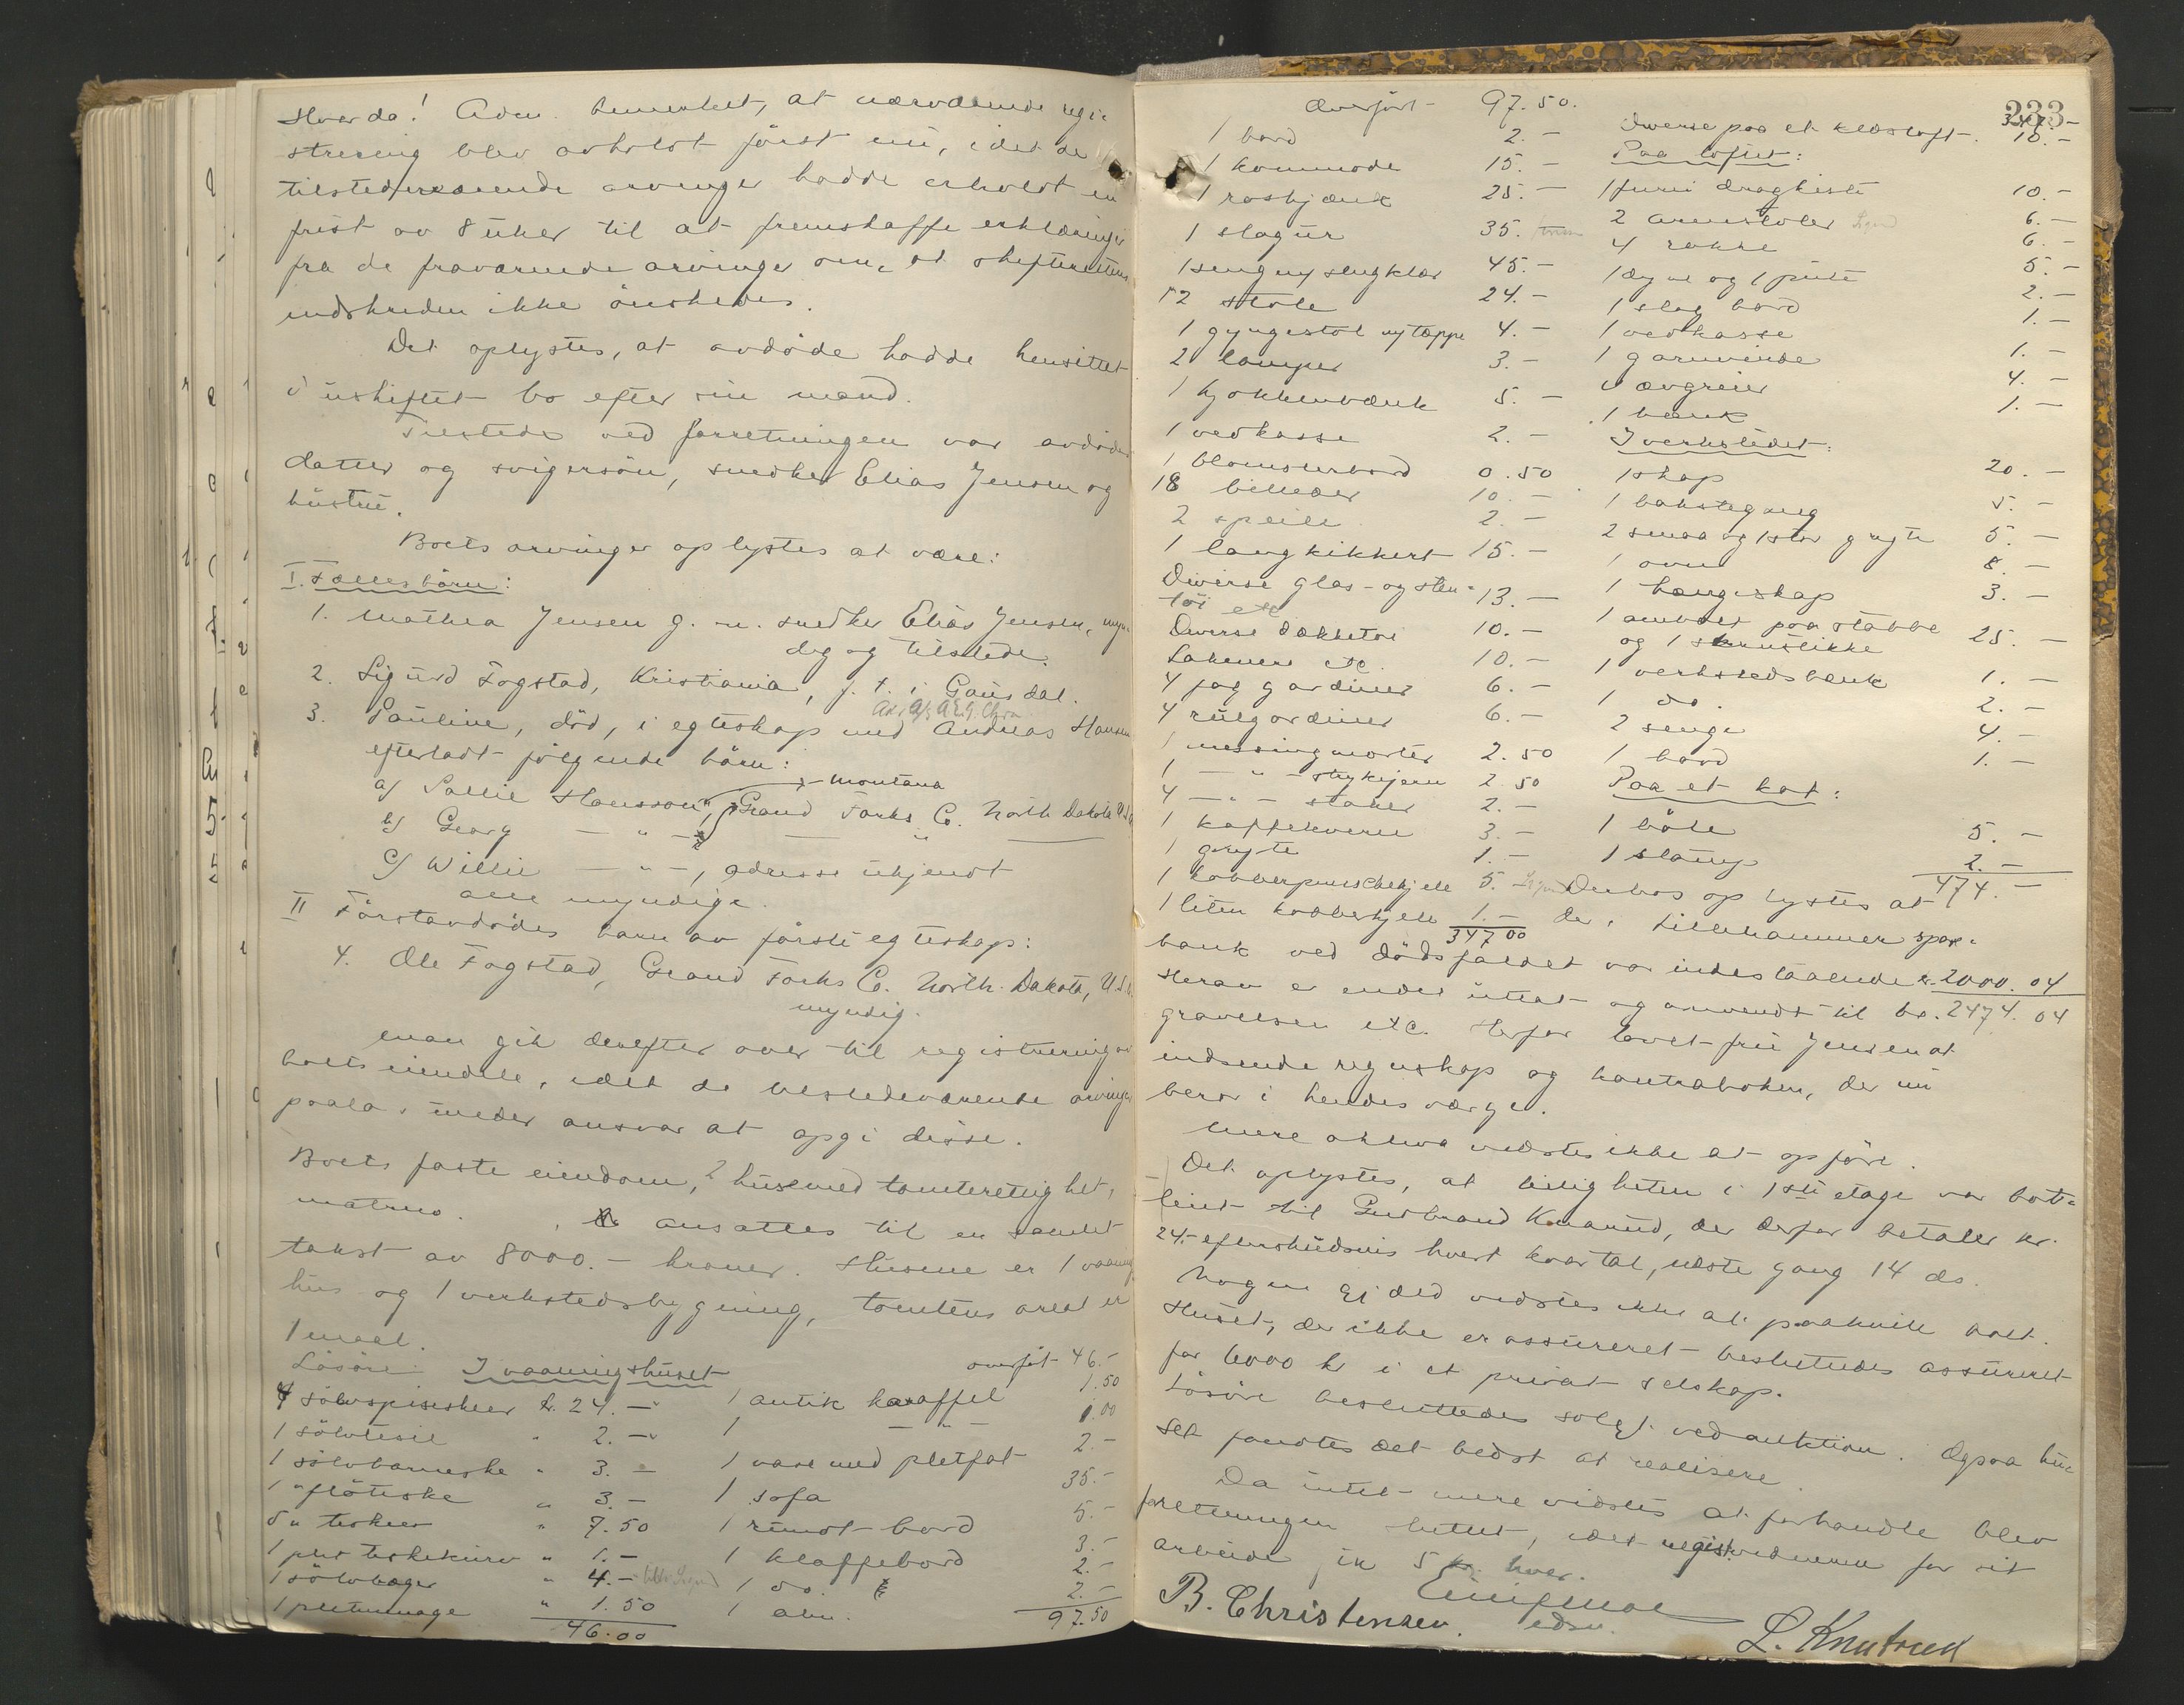 Hvorda! Adm. bemerket, at nærværende regi-
strering blev avholdt först nu, idet de
tilstedeværende arvinger hadde erholdt en
frist av 8 uker til at fremskaffe erklæringer
fra de fraværende arvinger om, at skifterettens
indskriden ikke önskedes.
Det oplystes, at avdöde hadde hensittet
i uskiftet bo efter sin mand.
Tilstede ved forretningen var avdödes
datter og svigersön, snedker Elias Jensen og
hustru.
Boets arvinger oplystes at være:
I. Fællesbörn:
1. Mathea Jensen g. m. snedker Elias Jensen, myn-
dig og tilstede.
2. Sigurd Fogstad, Kristiania, f. t. i Gausdal.
3. Pauline, död, i egteskap med Andreas Hansen
efterladt fölgende börn:
Montana
a) Pallie Hansson, Grand Forks Co. North Dakota U.S.A
b) Georg — " —
c) Willie — " —, adresse ukjendt
alle myndige.
II Förstavdödes barn av förste egteskap:
4. Ole Fogstad, Grand Forks Co. North. Dakota, U.S.A.
myndig.
Man gik derefter over til registrering av
boets eiendele, idet de tilstedeværende arvinger
paala. under ansvar at opgi disse.
Boets faste eiendom, 2 huse med tomterettighet,
matrno. , ansattes til en samlet
takst av 8000.- kroner. Husene er 1 vaanings
hus og 1 verkstedsbygning, tomtens areal er
1 maal.
Lösöre: I vaaningshuset
4 sölvspiseskeer kr. 24. —
1 sölvtesil " 2. —
1 sölvbarneske " 3. —
1 " flöteske " 3. —
5 " teskeer " 7.50
1 plet teskekurv " 1. —
1 sölvbæger " 4. —
1 pletmugge " 1.50
46.00
overfört 46.-
1 antik karaffel 1.50
1 — " — 1.00
1 vase med pletfot 2.-
1 sofa 35.-
1 rundt bord 5.-
1 klaffebord 3.-
1 do. 2.-
1 alm. 2.-
97.50
233
Overfört - 97.50.
1 bord 2.-
1 kommode 15.-
1 roskjænk 25.-
1 slagur 35.
1 seng m/ sengklær 45.-
12 stole 24.-
1 gyngestol m/ tæppe 4.-
2 lamper 3.-
1 kjökkenbænk 5.-
1 vedkasse 2.-
1 blomsterbord 0.50
18 billeder 10.-
2 speile 2.-
1 langkikkert 15.-
Diverse glas- og sten-
töi etc 13.-
Diverse dækketöi 10.-
Lakener etc. 10.-
4 fag gardiner 6.-
4 rulgardiner 6.-
1 messingmorter 2.50
1 — " — strykejern 2.50
4 — " — staker 2.-
1 kaffekvern 3.-
1 gryte 1.-
1 kobberpunschekjele 5.
1 liten kobbekjele 1.-
347 00
347.-
Diverse paa et klæsloft. 10.-
Paa loftet:
1 furu dragkiste 10.-
2 armstoler Sigurd 6.-
4 rokke 6.-
1 dyne og 1 pute 5.-
1 slag bord 2.-
1 vedkasse 1.-
1 garnvinde 1.-
Vævgreier 4.-
1 bænk 1.-
I verkstedet:
1 skap 20.-
1 bakstegang 5.-
2 smaa og 1 stor gryte 5.-
1 ovn 8.-
1 hængeskap 3.-
1 ambolt paa stabbe
og 1 skrustikke 25.-
1 verkstedsbænk 1.-
1 do. 2.-
2 senge 4.-
1 bord 1.-
Paa et kot:
1 böle 5.-
1 stamp 2.-
474.-
Derhos oplystes at
der i Lillehammer spare-
bank ved dödsfaldet var indestaaende kr. 2000.04
2474.04
Herav er endel uttat og anvendt til be-
gravelsen etc. Herfor lovet fru Jensen at
indsende regnskap og kontraboken, der nu
beror i hendes værge.
Mere aktiva vedstes ikke at opföre.
Det oplystes, at leiligheten i 1ste etage var bort-
leiet til Gudbrand Knarud, der derfor betaler kr.
24.- efterskudsvis hvert kvartal, næste gang 14 ds.
Nogen gjæld vedstes ikke at paahvile boet.
Huset, der ikke er assureret besluttedes assureret
for 6000 kr i et privat selskap.
Lösöre besluttedes solgt ved auktion. Ogsaa hu-
set fandtes det bedst at realisere.
Da intet mere vidstes at forhandle blev
forretningen sluttet, idet registr.vidnerne for sit
arbeide fik 5 kr. hver.
edsv.
B. Christensen. L. Knutrud